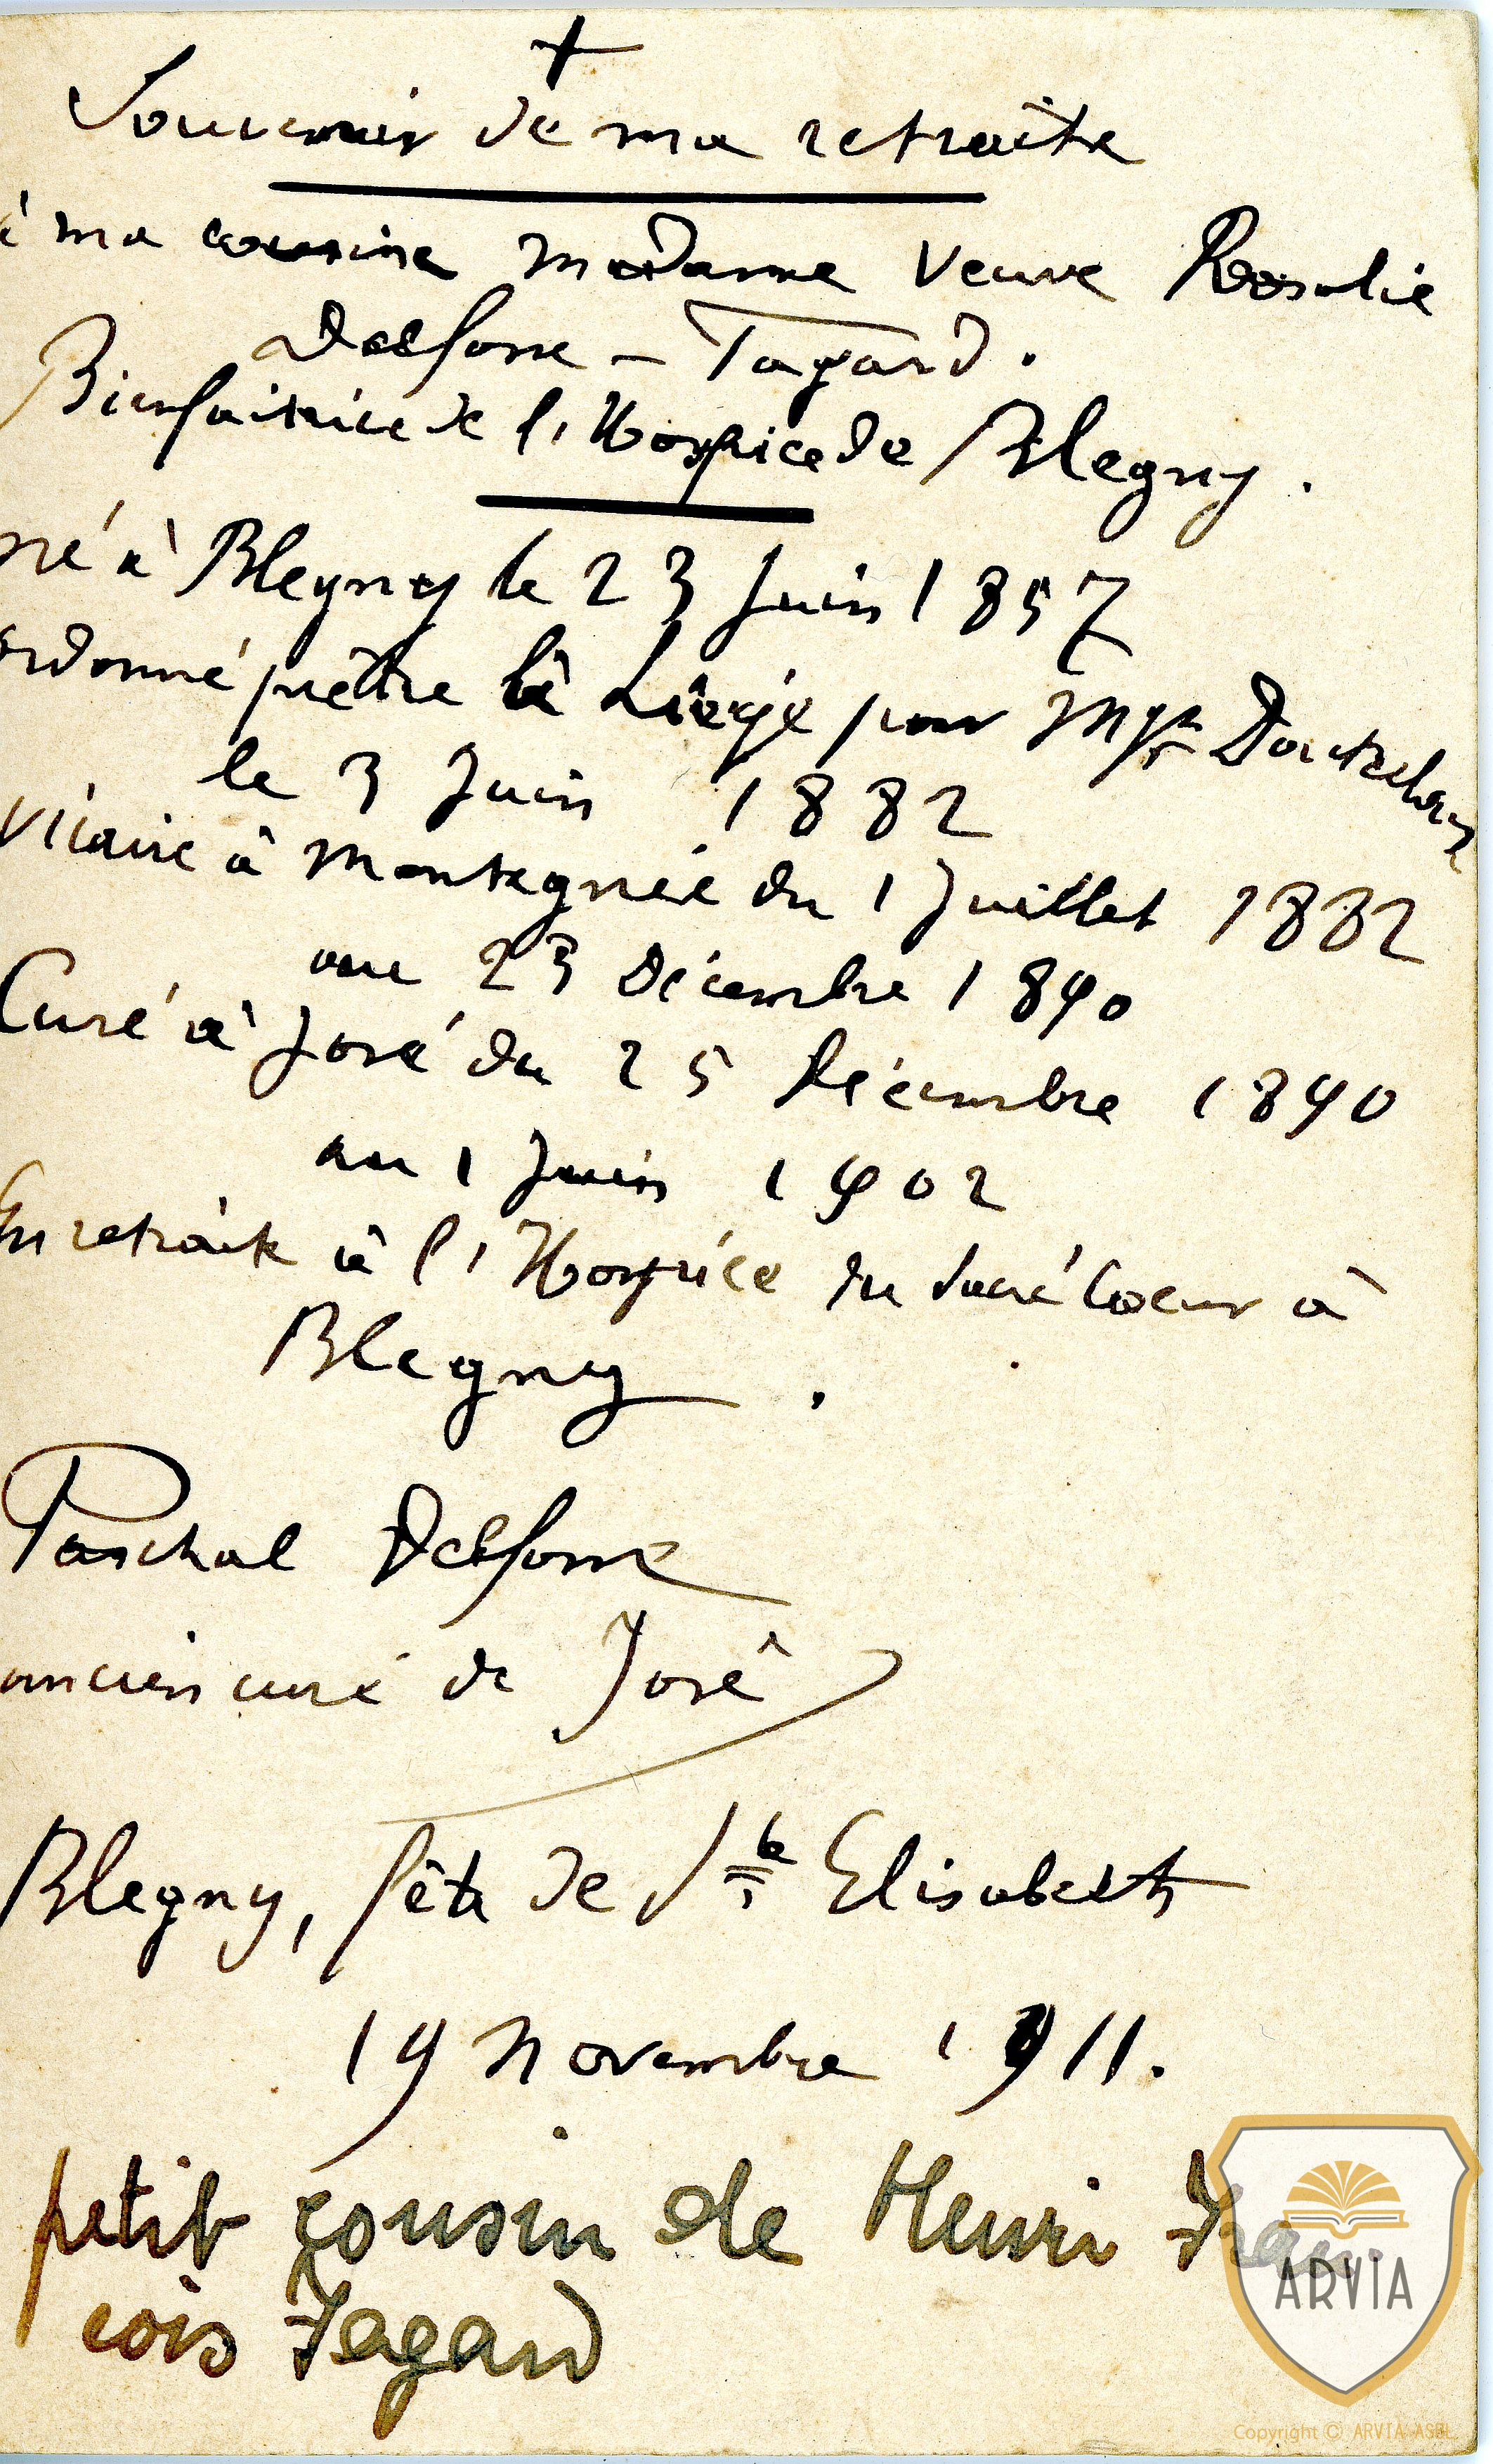 +
Souvenir de ma retraite
à ma cousine Madame Veuve Rosalie
Delfosse – Fagard.
Bienfaitrice de l'Hospice de Blegny.
né à Blegny le 23 Juin 1857
ordonné prêtre à Liège par Mgr Doutreloux
le 3 Juin 1882
Vicaire à Montegnée du 1 Juillet 1882
au 23 Décembre 1890
Curé à José du 25 Décembre 1890
au 1 Juin 1902
En retraite à l'Hospice du Sacré Coeur à
Blegny.
Paschal Delfosse
ancien curé de José
Blegny, fête de Ste Elisabeth
19 Novembre 1911.
petit cousin de Henri Fran-
cois Fagard
ARVIA
Copyright © ARVIA ASBL